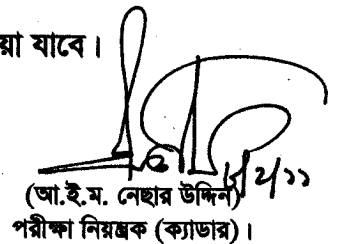 য়া যাবে।
(আ.ই.ম. নেছার উদ্দিন)
পরীক্ষা নিয়ন্ত্রক (ক্যাডার)।